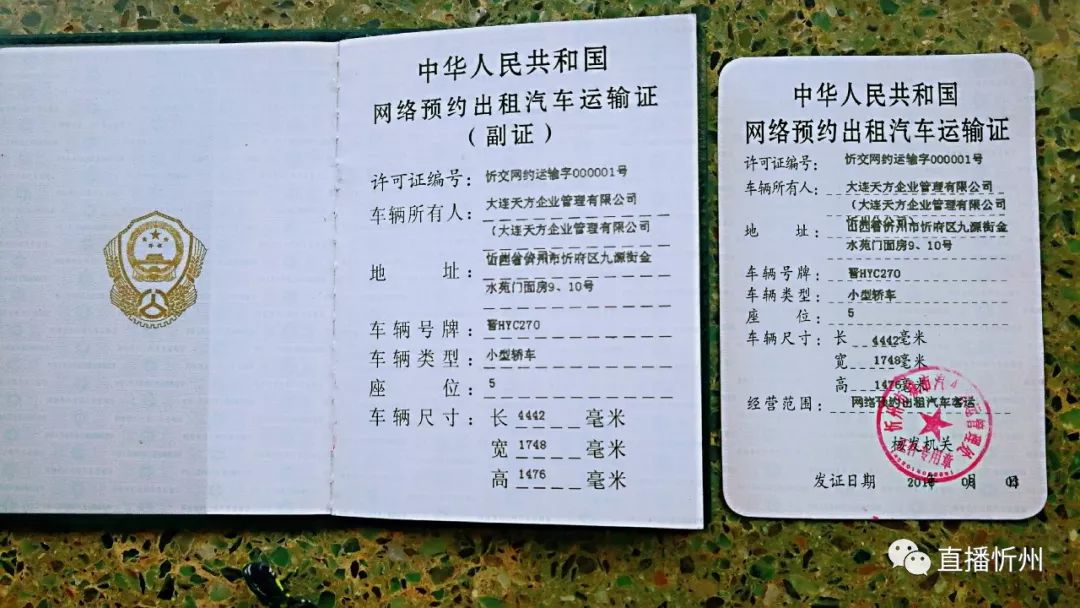 中华人民共和国
网络预约出租汽车运输证
（副证）
许可证编号：忻交网约运输字000001号
车辆所有人：大连天方企业管理有限公司
（大连天方企业管理有限公司
地　　址：山西省忻州市忻府区九源街金
水苑门面房9、10号
车辆号牌：晋HYC270
车辆类型：小型轿车
座　　位：5
车辆尺寸：长 4442 毫米
宽 1748 毫米
高 1476 毫米
中华人民共和国
网络预约出租汽车运输证
许可证编号：忻交网约运输字000001号
车辆所有人：大连天方企业管理有限公司
（大连天方企业管理有限公司
忻州分公司）
地　　址：山西省忻州市忻府区九源街金
水苑门面房9、10号
车辆号牌：晋HYC270
车辆类型：小型轿车
座　　位：5
车辆尺寸：长 4442毫米
宽 1748毫米
高 1476毫米
经营范围：网络预约出租汽车客运
核发机关
发证日期
直播忻州